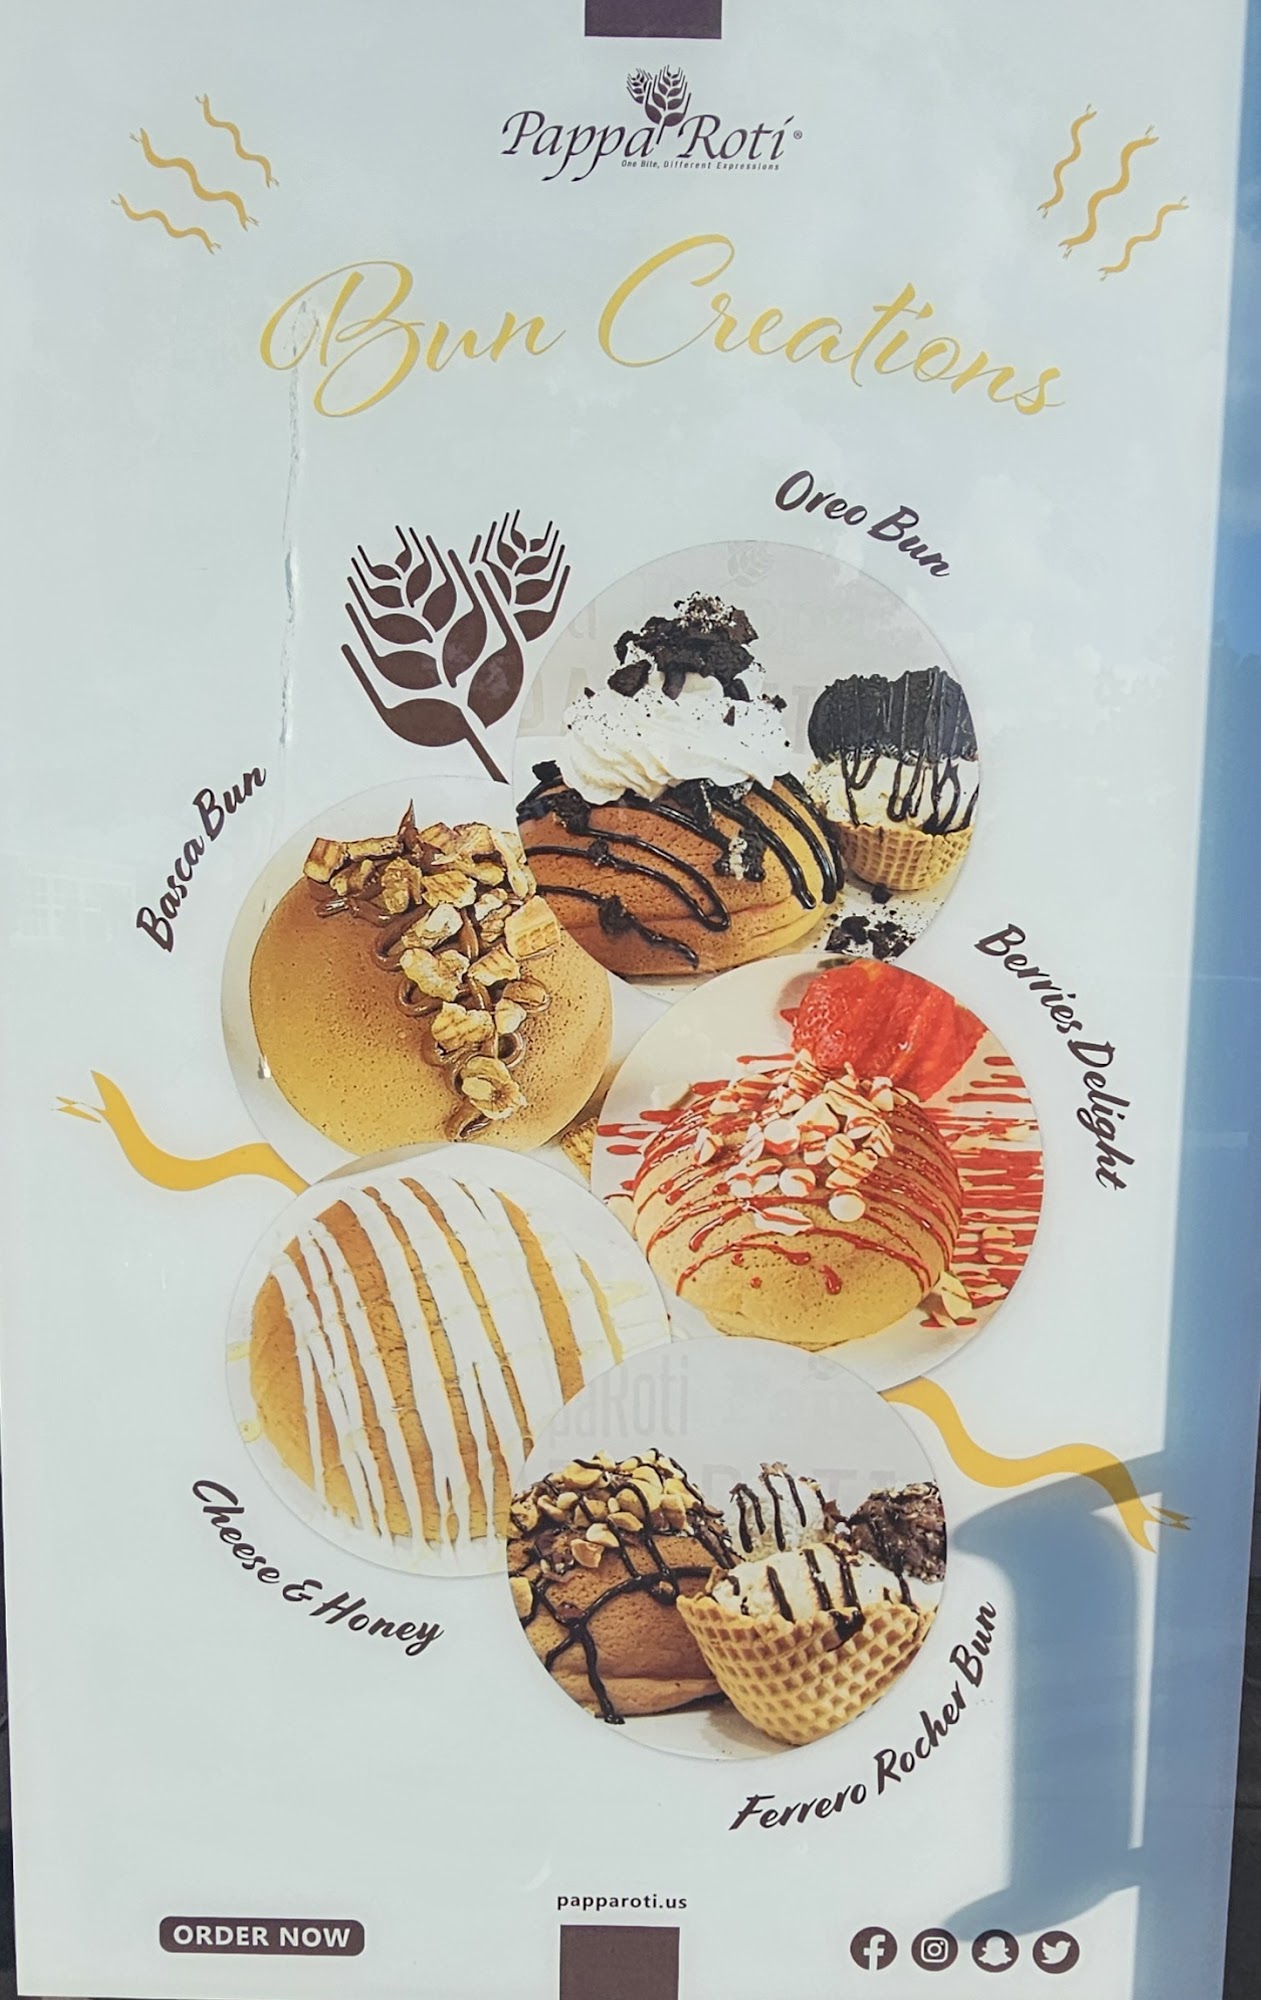 Pappa Roti®
One Bite, Different Expressions
Bun Creations
Oreo Bun
Basca Bun
Berries Delight
Cheese & Honey
Ferrero Rocher Bun
papparoti.us
ORDER NOW